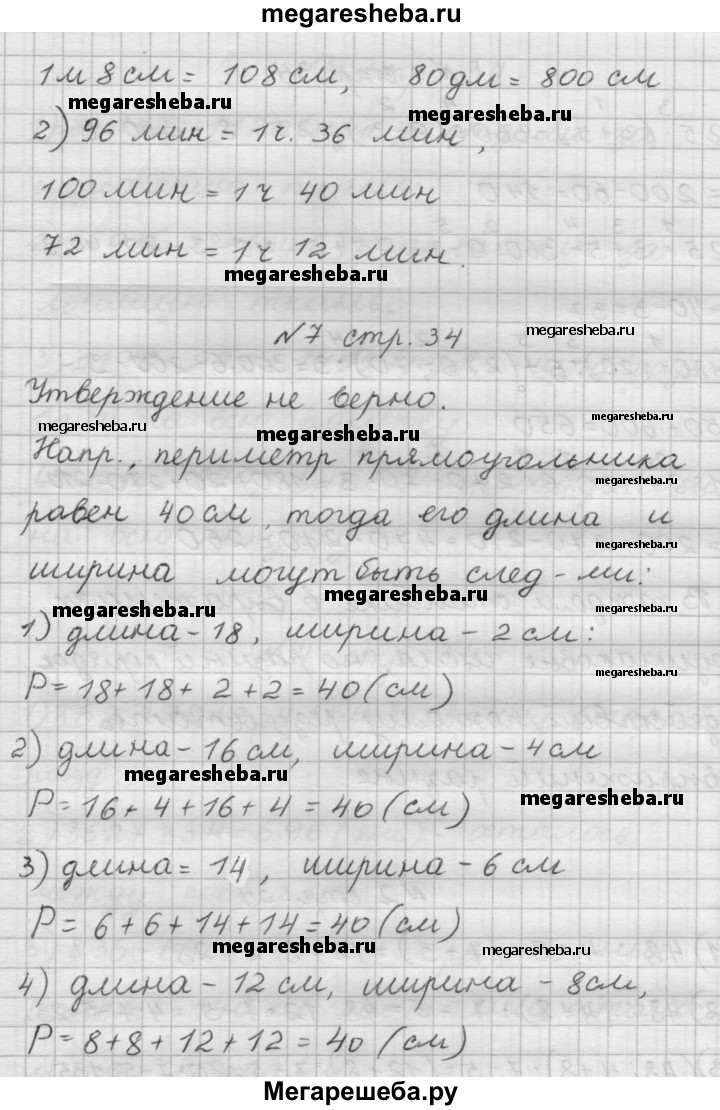 megaresheba.ru
1м 8см = 108 см, 80дм = 800 см
megaresheba.ru megaresheba.ru
2) 96 мин = 1ч. 36 мин,
100 мин = 1ч 40 мин
72 мин = 1ч 12 мин.
megaresheba.ru
№7 стр. 34
megaresheba.ru
Утверждение не верно.
megaresheba.ru megaresheba.ru megaresheba.ru
Напр., периметр прямоугольника
megaresheba.ru
равен 40 см, тогда его длина и
megaresheba.ru
ширина могут быть след-ми:
megaresheba.ru megaresheba.ru megaresheba.ru
1) длина - 18, ширина - 2 см:
megaresheba.ru
P = 18 + 18 + 2 + 2 = 40 (см)
2) длина - 16 см, ширина - 4 см
megaresheba.ru megaresheba.ru
P = 16 + 4 + 16 + 4 = 40 (см)
3) длина = 14, ширина - 6 см
P = 6 + 6 + 14 + 14 = 40 (см)
megaresheba.ru megaresheba.ru
4) длина - 12 см, ширина - 8см,
P = 8 + 8 + 12 + 12 = 40 (см)
Мегарешеба.ру